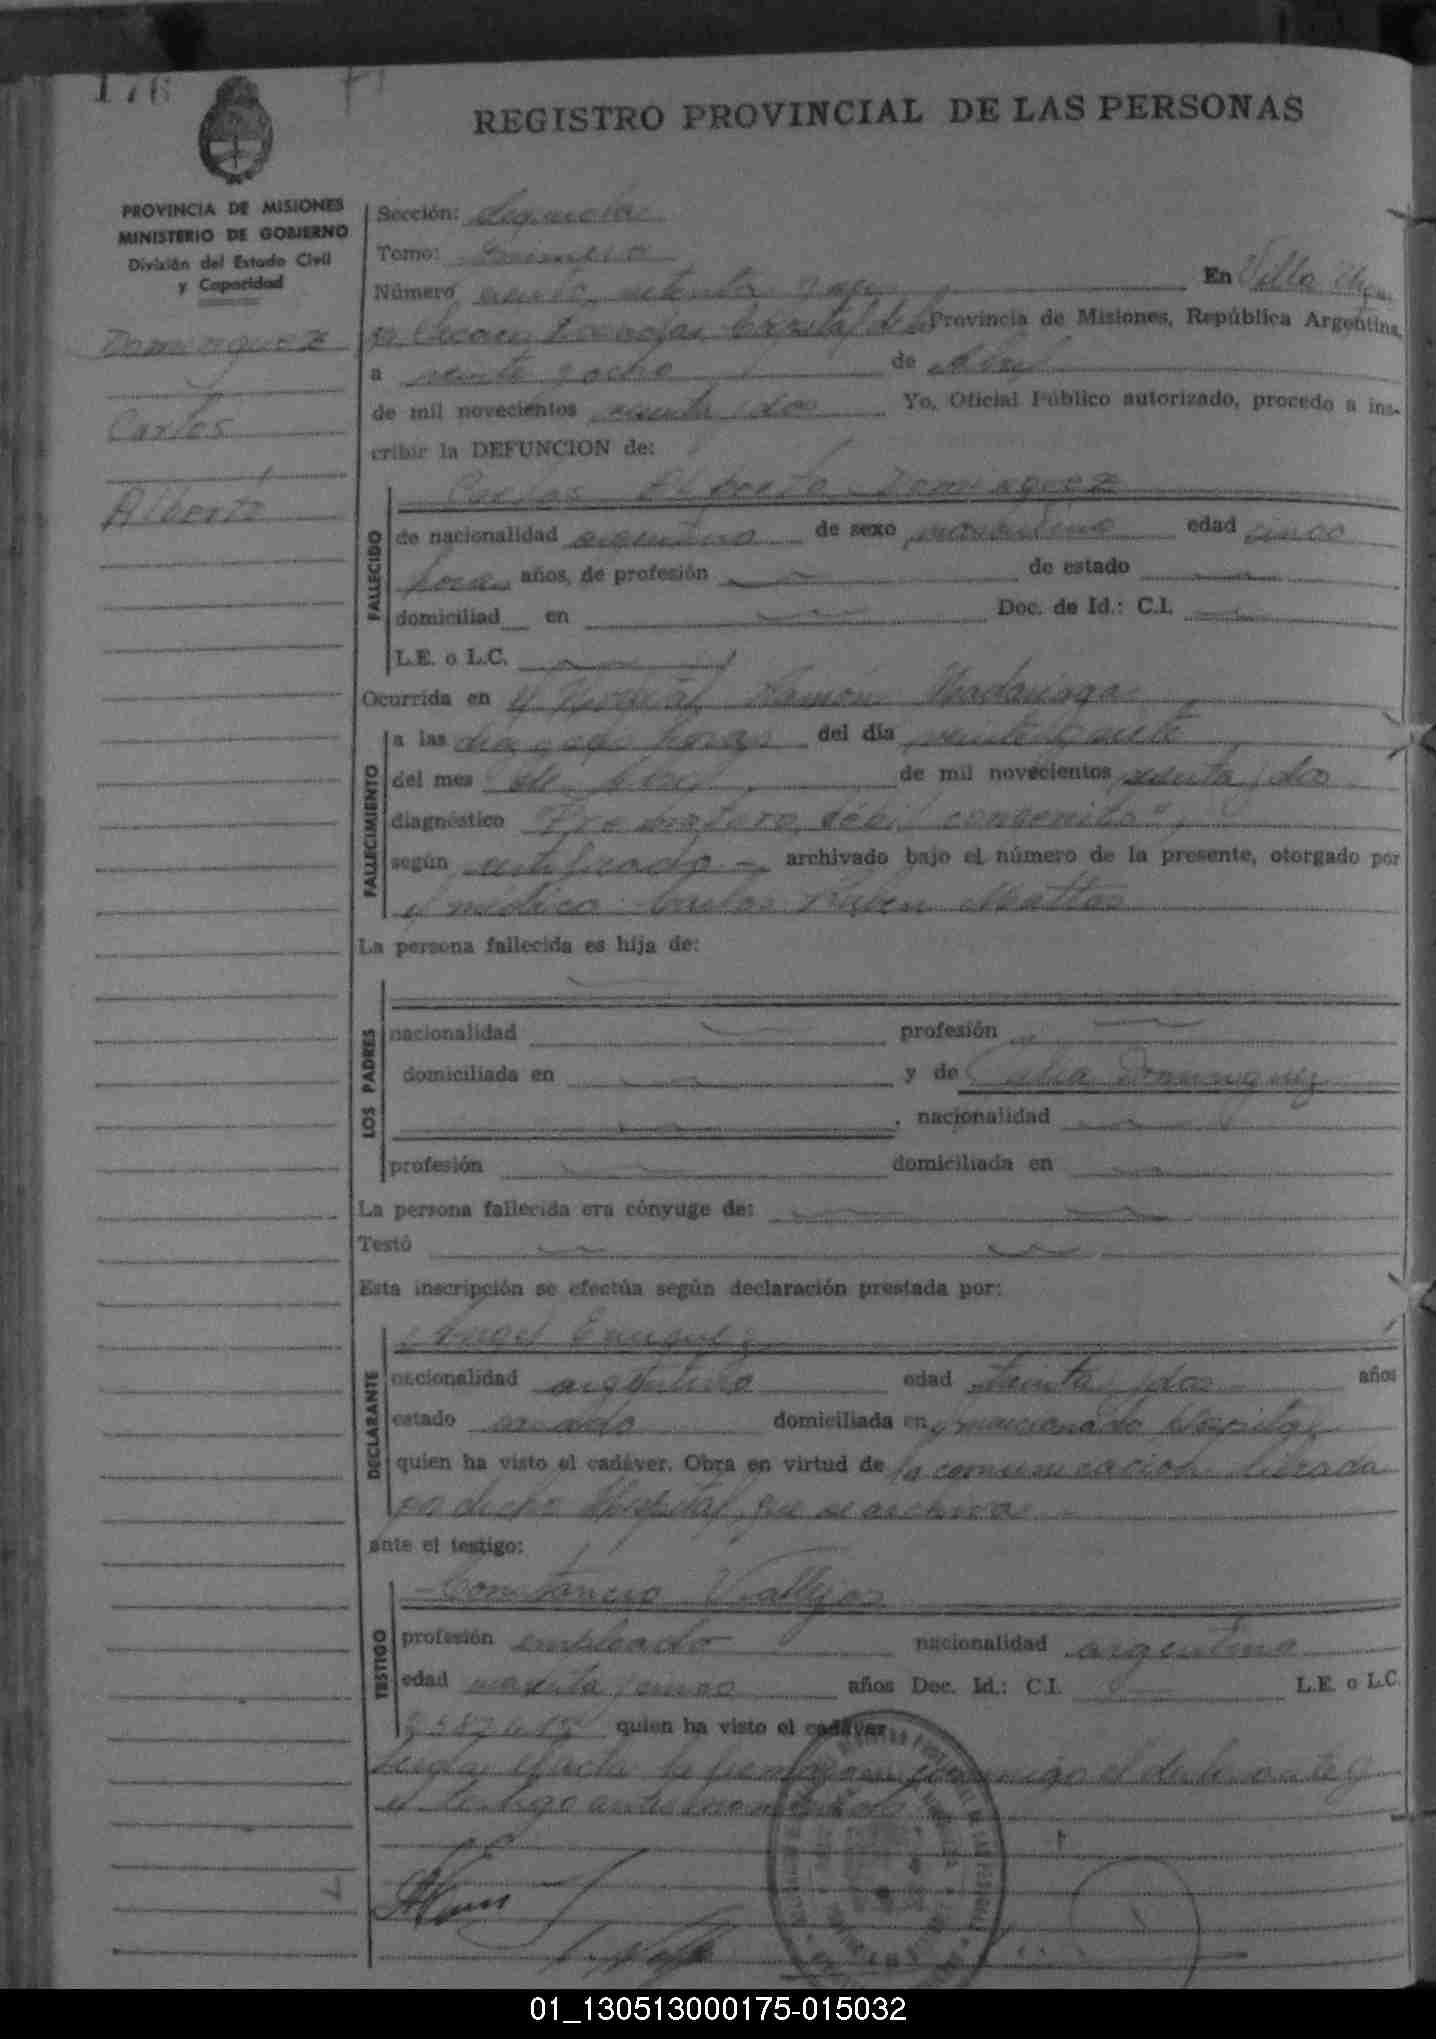 176
REGISTRO PROVINCIAL DE LAS PERSONAS
PROVINCIA DE MISIONES
MINISTERIO DE GOBIERNO
División del Estado Civil
y Capacidad
Dominguez
Carlos
Alberto
Sección: Segunda
Tomo: Primero
Número ciento setenta y seis En Villa
Capital de la Provincia de Misiones, República Argentina,
a veinte y ocho de Abril
de mil novecientos sesenta y dos Yo, Oficial Público autorizado, procedo a ins-
cribir la DEFUNCION de:
Carlos Alberto Dominguez
FALLECIDO
de nacionalidad argentino de sexo masculino edad cinco
horas años, de profesión de estado
domiciliad en Doc. de Id.: C.I.
L.E. o L.C.
Ocurrida en el Hospital Ramón Madariaga
FALLECIMIENTO
a las horas del día veinte y siete
del mes de Abril de mil novecientos sesenta y dos
diagnóstico "Prematuro, débil congenito",
según certificado archivado bajo el número de la presente, otorgado por
el médico Carlos Ruben Mattos
La persona fallecida es hija de:
LOS PADRES
nacionalidad profesión
domiciliada en y de Catia Dominguez
, nacionalidad
profesión domiciliada en
La persona fallecida era cónyuge de:
Testó
Esta inscripción se efectúa según declaración prestada por:
Angel Enrique
DECLARANTE
nacionalidad argentino edad treinta y dos años
estado casado domiciliada en el mencionado Hospital
quien ha visto el cadáver. Obra en virtud de la comunicación librada
por dicho Hospital, que se archiva
ante el testigo:
Constancio Vallejos
TESTIGO
profesión empleado nacionalidad argentino
edad cuarenta y cinco años Doc. Id.: C.I. L.E. o L.C.
quien ha visto el cadáver
Leida el acta la firman conmigo el declarante y
el testigo antes nombrado
01_130513000175-015032